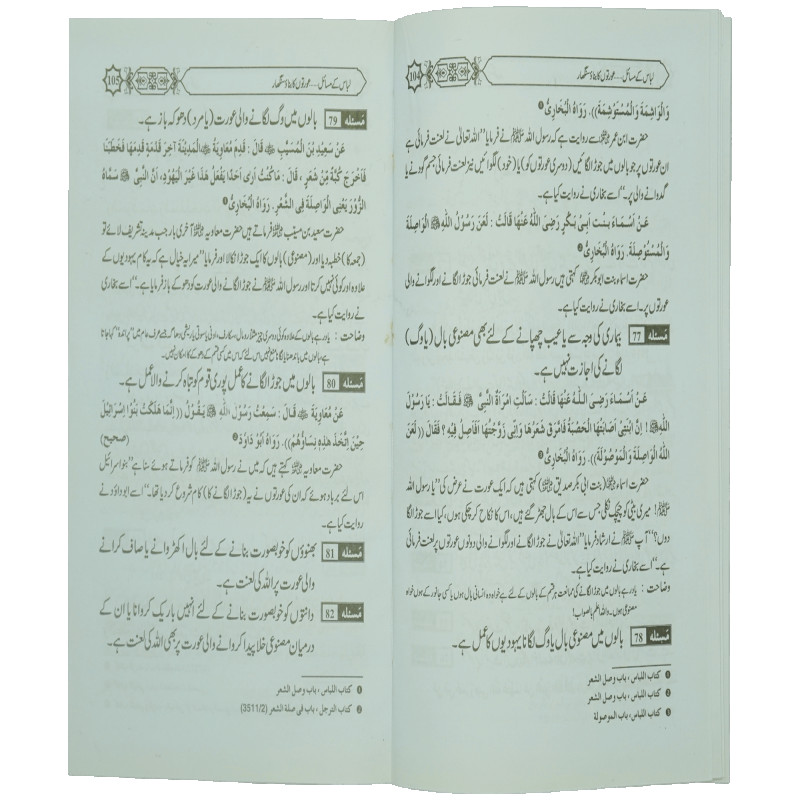 لباس کے مسائل ... عورتوں کا بناؤ سنگھار
104
وَالْوَاشِمَةَ وَالْمُسْتَوْشِمَةَ)). رَوَاهُ الْبُخَارِيُّ ❶
حضرت ابن عمر سے روایت ہے کہ رسول اللہ ﷺ نے فرمایا ’’اللہ تعالیٰ نے لعنت فرمائی ہے
ان عورتوں پر جو بالوں میں جوڑا لگائیں (دوسری عورتوں کو) یا (خود) لگوائیں نیز لعنت فرمائی جسم گودنے یا
گدوانے والی پر۔‘‘ اسے بخاری نے روایت کیا ہے۔
عَنْ أَسْمَاءَ بِنْتِ أَبِيْ بَكْرٍ رَضِيَ اللّٰهُ عَنْهَا قَالَتْ : لَعَنَ رَسُوْلُ اللّٰهِ ﷺ الْوَاصِلَةَ
وَالْمُسْتَوْصِلَةَ. رَوَاهُ الْبُخَارِيُّ ❷
حضرت اسماء بنت ابوبکر کہتی ہیں رسول اللہ ﷺ نے لعنت فرمائی جوڑا لگانے اور لگوانے والی
عورتوں پر۔ اسے بخاری نے روایت کیا ہے۔
مسئلہ 77 بیماری کی وجہ سے یا عیب چھپانے کے لئے بھی مصنوعی بال (یا وگ)
لگانے کی اجازت نہیں ہے۔
عَنْ أَسْمَاءَ رَضِيَ اللّٰهُ عَنْهَا قَالَتْ : سَأَلَتِ امْرَأَةٌ النَّبِيَّ ﷺ فَقَالَتْ : يَا رَسُوْلَ
اللّٰهِ ﷺ ! إِنَّ ابْنَتِيْ أَصَابَتْهَا الْحَصْبَةُ فَامَّرَقَ شَعْرُهَا وَإِنِّيْ زَوَّجْتُهَا أَفَأَصِلُ فِيْهِ ؟ فَقَالَ ((لَعَنَ
اللّٰهُ الْوَاصِلَةَ وَالْمَوْصُوْلَةَ)). رَوَاهُ الْبُخَارِيُّ ❸
حضرت اسماء (بنت ابی بکر صدیق) کہتی ہیں کہ ایک عورت نے عرض کی ’’یا رسول اللہ
ﷺ! میری بیٹی کو چیچک نکلی جس سے اس کے بال جھڑ گئے ہیں، اس کا نکاح کر چکی ہوں، کیا اسے جوڑا لگا
دوں؟‘‘ آپ ﷺ نے ارشاد فرمایا ’’اللہ تعالیٰ نے جوڑا لگانے اور لگوانے والی دونوں عورتوں پر لعنت فرمائی
ہے۔‘‘ اسے بخاری نے روایت کیا ہے۔
وضاحت : یاد رہے بالوں میں جوڑا لگانے کی ممانعت ہر قسم کے بالوں کے لئے ہے خواہ وہ انسانی بال ہوں یا کسی جانور کے ہوں خواہ
مصنوعی ہوں۔ واللہ اعلم بالصواب!
مسئلہ 78 بالوں میں مصنوعی بال یا وگ لگانا یہودیوں کا عمل ہے۔
❶ کتاب اللباس، باب وصل الشعر
❷ کتاب اللباس، باب وصل الشعر
❸ کتاب اللباس، باب الموصولة
لباس کے مسائل ... عورتوں کا بناؤ سنگھار
105
مسئلہ 79 بالوں میں وگ لگانے والی عورت (یا مرد) دھوکہ باز ہے۔
عَنْ سَعِيْدِ بْنِ الْمُسَيَّبِ قَالَ : قَدِمَ مُعَاوِيَةُ الْمَدِيْنَةَ آخِرَ قَدْمَةٍ قَدِمَهَا فَخَطَبَنَا
فَأَخْرَجَ كُبَّةً مِّنْ شَعْرٍ ، قَالَ : مَا كُنْتُ أَرٰى أَحَدًا يَفْعَلُ هٰذَا غَيْرَ الْيَهُوْدِ، أَنَّ النَّبِيَّ ﷺ سَمَّاهُ
الزُّوْرَ يَعْنِي الْوَاصِلَةَ فِي الشَّعْرِ. رَوَاهُ الْبُخَارِيُّ ❶
حضرت سعید بن مسیب فرماتے ہیں حضرت معاویہ آخری بار جب مدینہ تشریف لائے تو
(جمعہ کا) خطبہ دیا اور (مصنوعی) بالوں کا ایک جوڑا نکالا اور فرمایا ’’میرا یہ خیال ہے کہ یہ کام یہودیوں کے
علاوہ اور کوئی نہیں کرتا اور رسول اللہ ﷺ نے جوڑا لگانے والی عورت کو دھوکے باز فرمایا ہے۔‘‘ اسے بخاری
نے روایت کیا ہے۔
وضاحت : یاد رہے بالوں کے علاوہ کوئی دوسری چیز مثلاً رومال، سکارف، اونی یا سوتی یا ریشمی دھاگہ جسے عرف عام میں ’’پراندہ‘‘ کہا جاتا
ہے بالوں میں باندھنا یا لگانا منع نہیں اس لئے کہ اس میں کسی قسم کے دھوکے کا امکان نہیں۔
مسئلہ 80 بالوں میں جوڑا لگانے کا عمل پوری قوم کو تباہ کرنے والا عمل ہے۔
عَنْ مُعَاوِيَةَ قَالَ : سَمِعْتُ رَسُوْلَ اللّٰهِ ﷺ يَقُوْلُ ((إِنَّمَا هَلَكَتْ بَنُوْا إِسْرَائِيْلَ
حِيْنَ اتَّخَذَ هٰذِهِ نِسَاؤُهُمْ)). رَوَاهُ أَبُوْ دَاوُدَ ❷ (صحيح)
حضرت معاویہ کہتے ہیں کہ میں نے رسول اللہ ﷺ کو فرماتے ہوئے سنا ہے ’’بنو اسرائیل
اس لئے برباد ہوئے کہ ان کی عورتوں نے یہ (جوڑا لگانے کا) کام شروع کر دیا تھا۔‘‘ اسے ابوداؤد نے
روایت کیا ہے۔
مسئلہ 81 بھنوؤں کو خوبصورت بنانے کے لئے بال اکھڑوانے یا صاف کرانے
والی عورت پر اللہ کی لعنت ہے۔
مسئلہ 82 دانتوں کو خوبصورت بنانے کے لئے انہیں باریک کروانا یا ان کے
درمیان مصنوعی خلا پیدا کروانے والی عورت پر بھی اللہ کی لعنت ہے۔
❶ کتاب اللباس، باب وصل الشعر
❷ کتاب الترجل، باب فی صلة الشعر (3511/2)